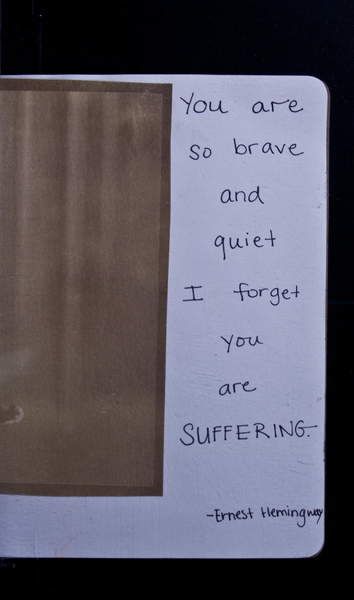 You are
so brave
and
quiet
I forget
you
are
SUFFERING.
-Ernest Hemingway